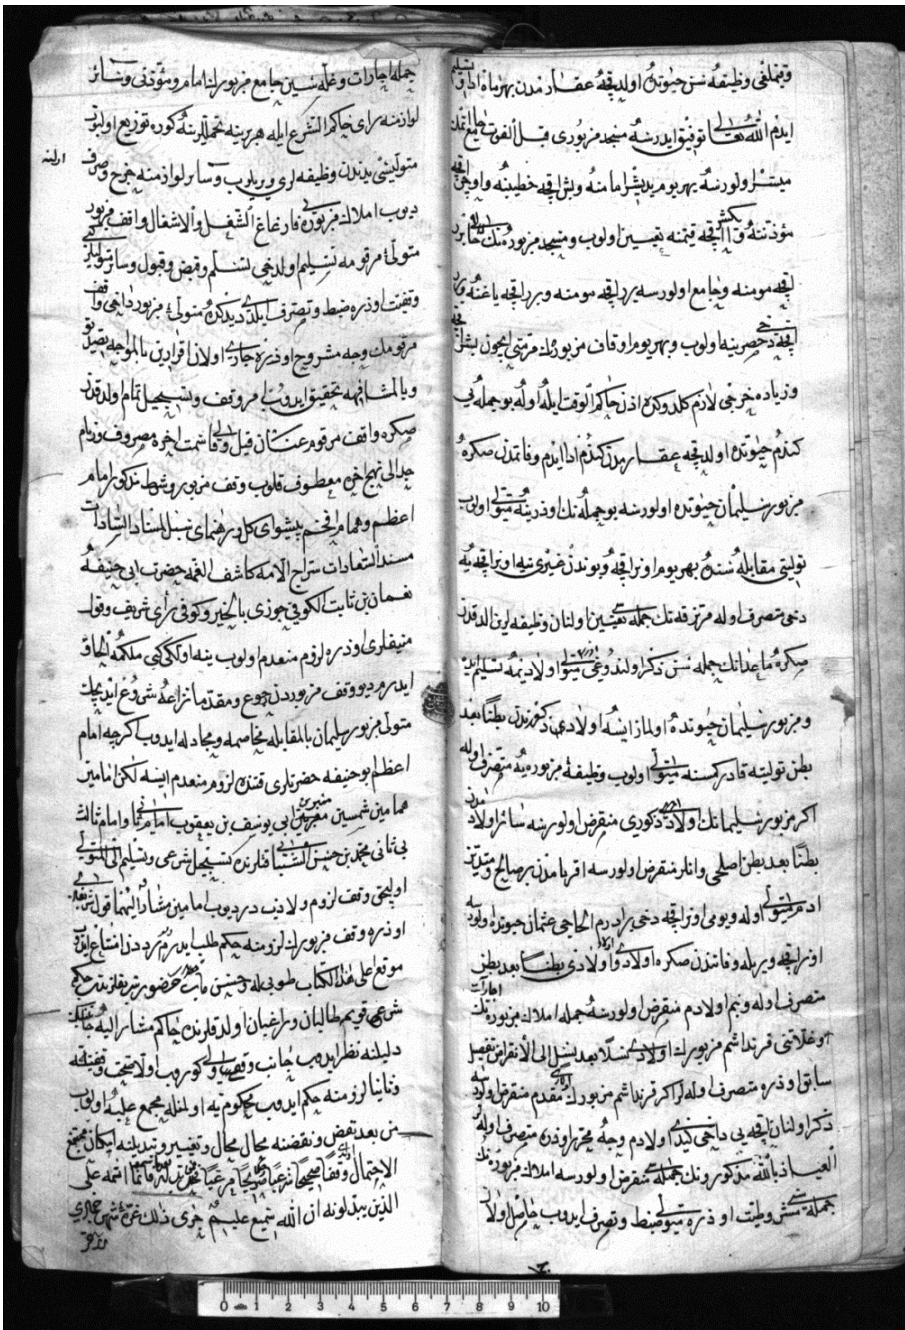 وقيملغى وظيفه سن حيوتده اولدقچه عقاردن بهر ماه ادا
ايدم الله تعالى توفيق ايدرسه مسجد مزبورى قبل الفوت جامع
ميسر اولورسه بهر يوم يديشر امامنه وبش اقچه خطيبنه واوچ اقچه
مؤذننه و اقچه قيمنه تعيين اولوب ومسجد مزبورنك
اقچه مومنه وجامع اولورسه بر اقچه مومنه وبر اقچه ياغنه
اقچه دخى حصيرينه اولوب وبهر يوم اوقاف مزبورك مرمتى ايچون بشر
وزياده خرجى لازم كلدوكده اذن حاكم الوقت ايله اوله بو جمله يى
كندم حيوتده اولدقچه عقاردن كندم ادا ايدم وفاتمدن صكره
مزبور سليمان حيوتده اولورسه بو جمله نك اوزرينه متولى اولوب
توليتى مقابله سنده بهر يوم اون اقچه وبوندن غيرى ينه اون اقچه يه
دخى متصرف اوله مرتزقه نك جمله تعيين اولنان وظيفه لرين الدقدن
صكره ماعدانك جمله سن ذكر اولندوغى متولى اولاديمه تسليم ايده
ومزبور سليمان حيوتده اولماز ايسه اولادى ذكورندن بطنا بعد
بطن توليته قادر كمسنه متولى اولوب وظيفه مزبوره يه متصرف اوله
اكر مزبور سليمانك اولاد ذكورى منقرض اولورسه سائر اولادمدن
بطنا بعد بطن اصلحى وانلر منقرض اولورسه اقربامدن بر صالح ومتدين
ادم متولى اوله ويومى اون اقچه دخى برادرم الحاجى عثمان حيوتده اولورسه
اون اقچه ويريله وفاتندن صكره اولادى واولاد اولادى بطنا بعد بطن
متصرف اوله وبنم اولادم منقرض اولورسه جمله املاك مزبوره نك اجارات
وغلاتنى قرنداشم مزبورك اولادى نسلا بعد نسل الى الانقراض تفصيل
سابق اوزره متصرف اوله لر اكر قرنداشم مزبورك اولادى مقدم منقرض اولورسه
ذكر اولنان اقچه يى داخى كندى اولادم وجه محرر اوزره متصرف اوله لر
العياذ بالله مذكورونك جمله سى منقرض اولورسه املاك مزبوره نك
جمله سى متولى ضبط وتصرف ايدوب حاصل اولان
جمله اجارات وغله سين جامع مزبورك امام ومؤذنى وسائر
لوازمنه راى حاكم الشرع ايله هر برينه تحمللرينه كوره توزيع اولنوب
متوليسى يدندن وظيفه لرى ويريلوب وسائر لوازمنه خرج وصرف اولنه
ديوب املاك مزبوره يى فارغا عن الشغل والاشغال واقف مزبور
متولئ مرقومه تسليم اولدخى تسلم وقبض وقبول وسائر متوليلر كبى
وقفيت اوزره ضبط وتصرف ايلدى ديدكده متولئ مزبور داخى واقف
مرقومك وجه مشروح اوزره جارى اولان اقرارين بالمواجهه تصديق
وبالمشافهه تحقيق ايدوب امر وقف وتسجيل تمام اولدقدن
صكره واقف مرقوم عنان قيل وقالى سمت اخره مصروف وزمام
جدالى نهج اخره معطوف قلوب وقف مزبور وشرط مذكور امام
اعظم وهمام افخم پيشواى كل ورهنماى سبل استاد السادات
مسند السعادات سراج الامه كاشف الغمه حضرت ابى حنيفه
نعمان بن ثابت الكوفى جوزى بالخير وكوفى رأى شريف وقول
منيفلرى اوزره لزوم منعدم اولوب ينه اولكى كبى ملكمه الحاق
ايدرم ديو وقف مزبوردن رجوع ومقدما نزاعه شروع ايديجك
متولى مزبور سليمان بالمقابله مخاصمه ومجادله ايدوب كرچه امام
اعظم ابو حنيفه حضرتلرى قتنده لزوم منعدم ايسه لكن امامين
همامين شمسين منيرين ابى يوسف بن يعقوب امام ثانى وامام ثالث
محمد بن حسن الشيبانى قتلرنده تسجيل شرعى وتسليم الى المتولى
اوليجق وقف لزوم ولازب در ديوب امامين مشار اليهما قول شريفلرى
اوزره وقف مزبورك لزومنه حكم طلب ايدرم ردن امتناع ايدوب
موقع اعلى هذا الكتاب طوبى له وحسن مآب حضور شريفلرنده حكم
شرعى قويم طالبان وراغبان اولدقلرنده حاكم مشار اليه جانبينك
دليلنه نظر ايدوب جانب وقفى اولى كوروب اولا صحت وقفيتنه
وثانيا لزومنه حكم ايدوب محكوم به اولمغله مجمع عليه اولوب
من بعد نقض ونقضنه مجال محال وتغيير وتبديلنه امكان ممتنع
الاحتمال وقفا صحيحا شرعيا فانما اثمه على
الذين يبدلونه ان الله سميع عليم جرى ذلك غرة شهر